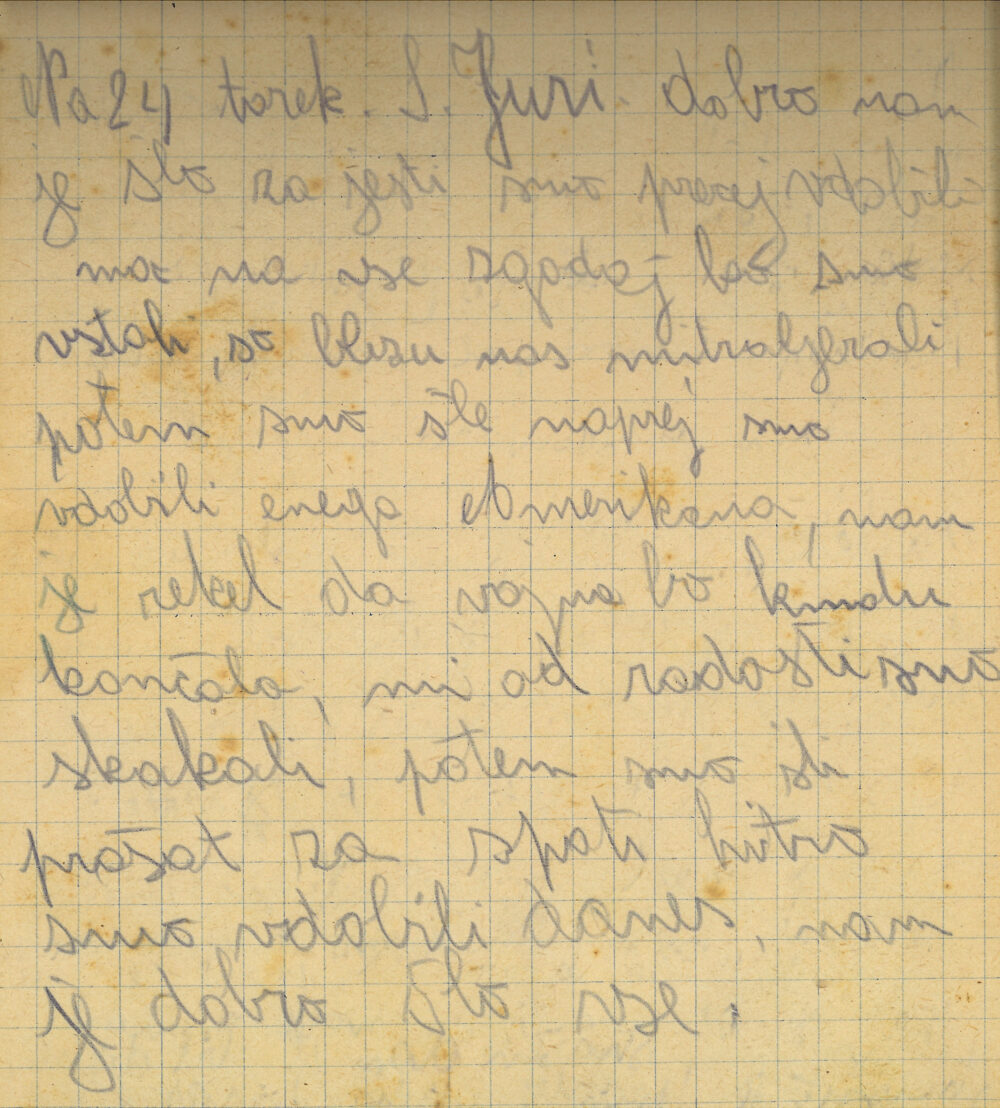 Na 24 torek. S. Juri. dobro nam
je šlo za jesti smo precej vdobili
moc na vse zgodaj ko smo
vstali, so blizu nas mitraljerali
potem smo šle naprej smo
vdobili enega Amerikana, nam
je rekel da vojna bo kmalu
končala, mi od radosti smo
skakali, potem smo šli
prašat za spati hitro
smo vdobili danes, nam
je dobro šlo vse.